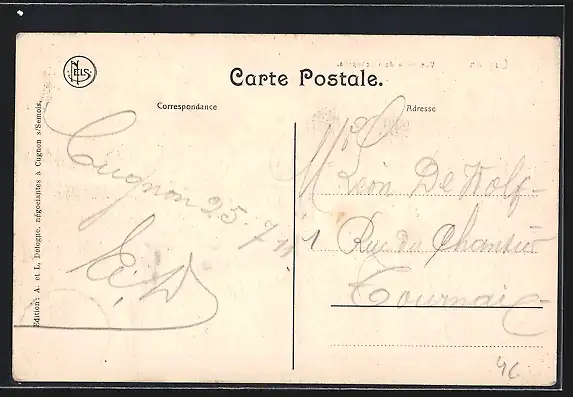 NELS
Carte Postale.
Correspondance
Adresse
Edition: A. et L. Delogne, négociantes à Cugnon s/Semois.
Cugnon 25/7 11
Mr
Léon De Wolf-
1 Rue du Chantier
Tournai
46